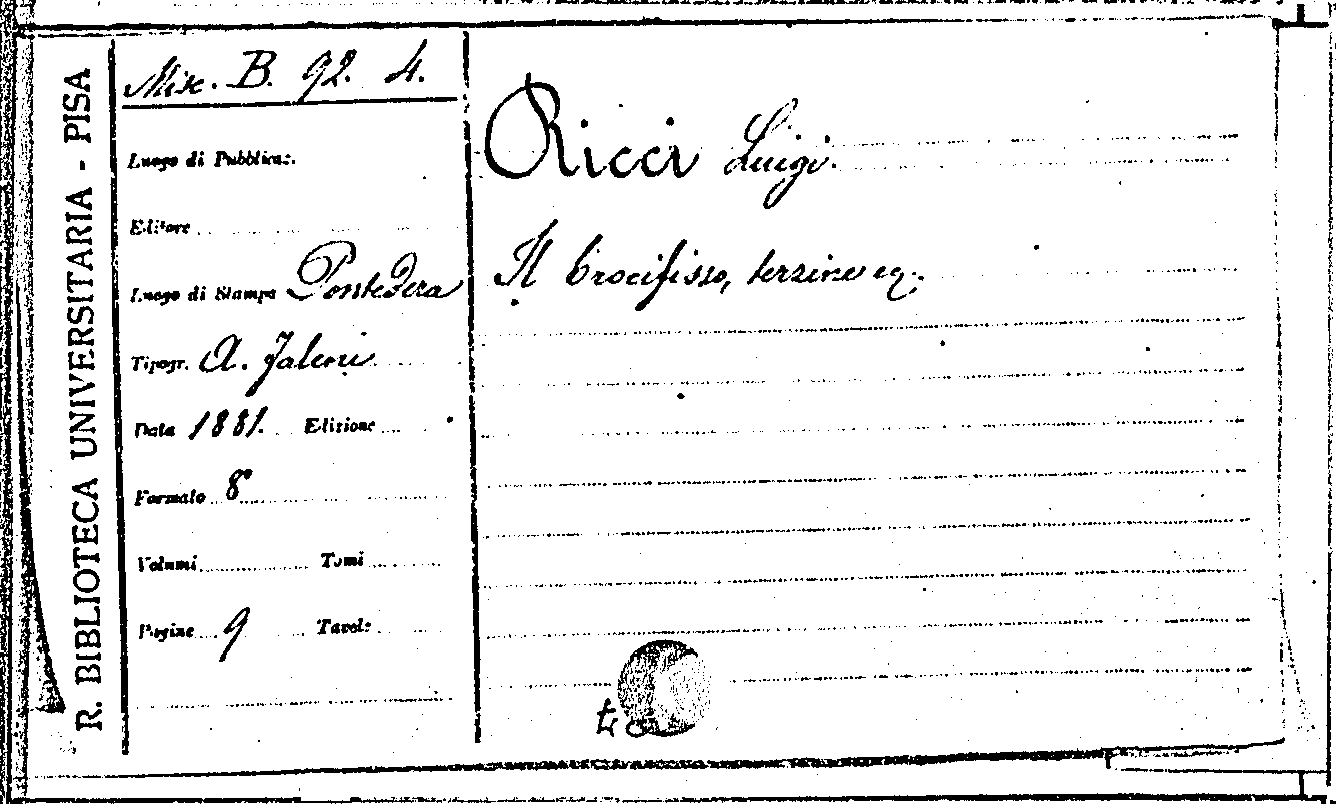 R. BIBLIOTECA UNIVERSITARIA - PISA
Misc. B. 92. 4.
Luogo di Pubblicaz.
Editore
Luogo di Stampa Pontedera
Tipogr. A.
Data 1881. Edizione
Formato 8°
Volumi Tomi
Pagine 9 Tavole
Ricci Luigi.
Il Crocifisso, terzine